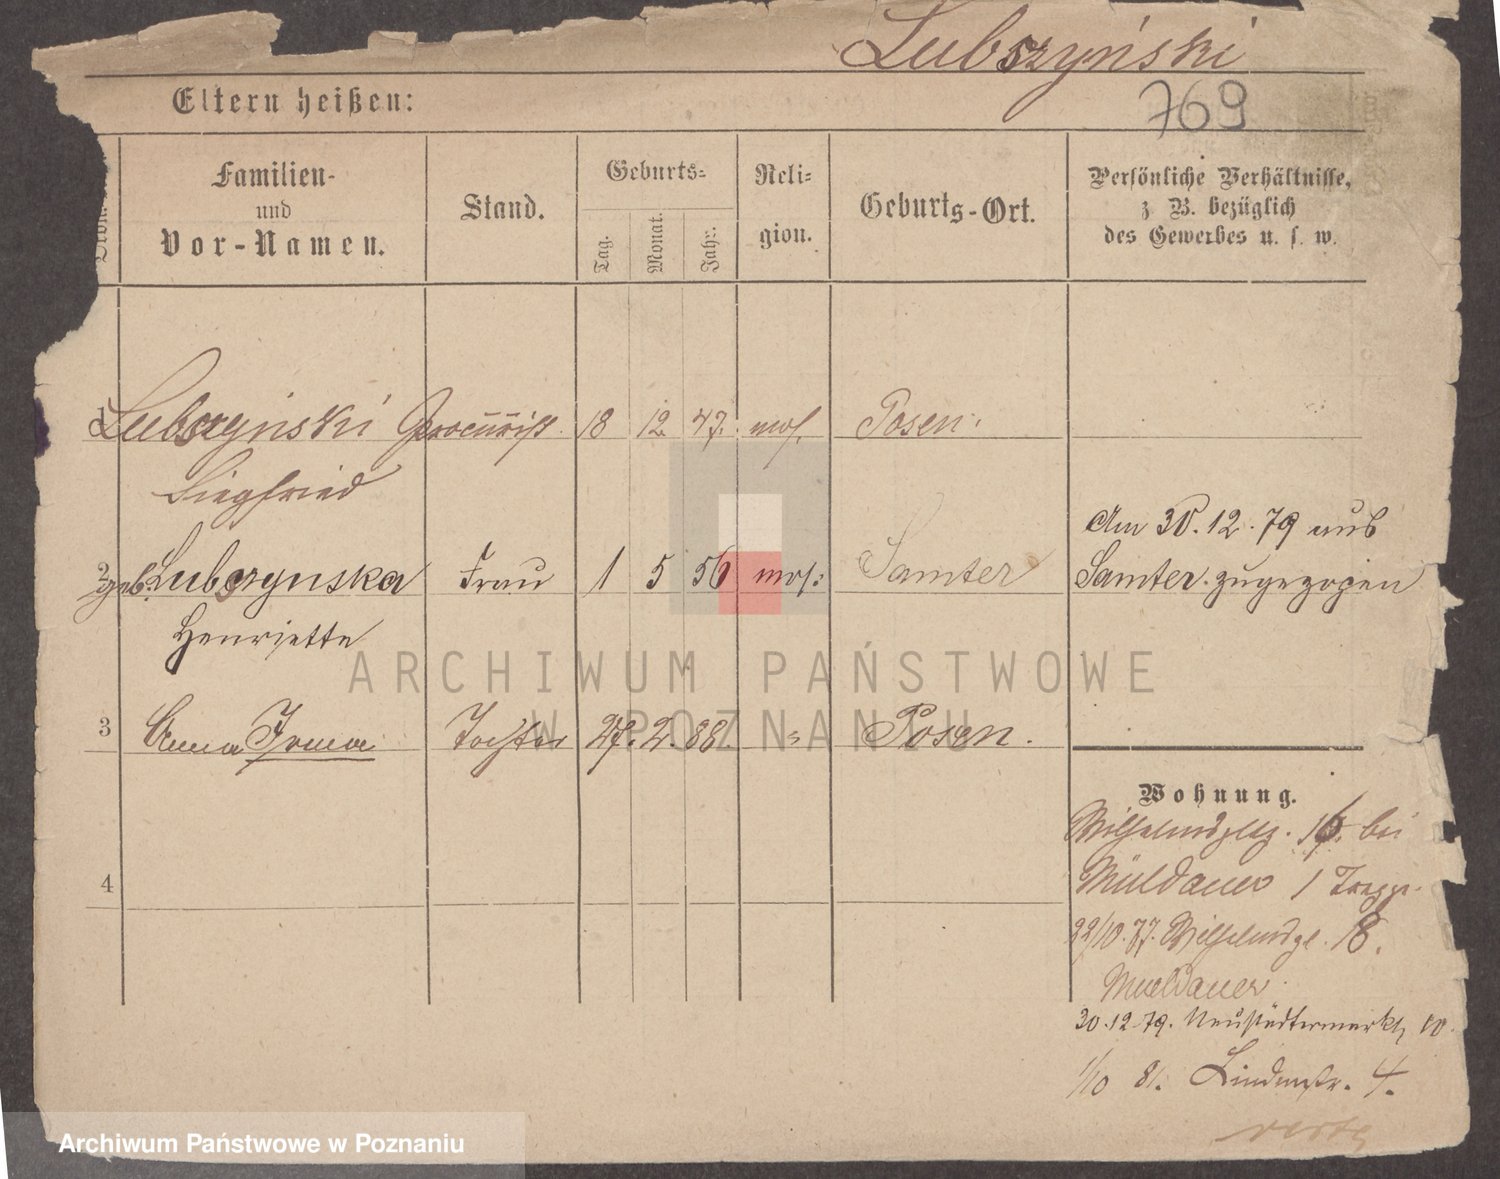 Lubszyński
769
Eltern heißen:
Familien-
und
Vor-Namen.
Stand.
Geburts-
Tag.
Monat.
Jahr.
Reli-
gion.
Geburts-Ort.
Persönliche Verhältnisse,
z B. bezüglich
des Gewerbes u. s. w.
1 Lubszynski Procurist 18 12 47. mos. Posen.
Siegfried
2 geb. Lubszynska Frau 1 5 56 mos: Samter
Henriette
Am 30.12.79 aus
Samter zugezogen
3 Anna Irma Tochter 27. 2. 88. " Posen.
4
Wohnung.
Wilhelmsplatz. 16. bei
Müldauer 1 Treppe.
22/10.77. Wilhelmspl. 18.
Mueldauer
30.12.79. Neustädtermarkt 10.
1/10 81. Lindenstr. 4.
ARCHIWUM PAŃSTWOWE
W POZNANIU
Archiwum Państwowe w Poznaniu